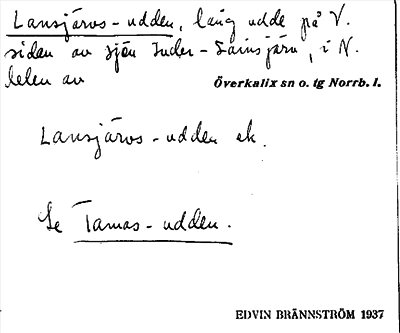 Lansjärvs-udden, lång udde på V.
sidan av sjön Inder-Lainsjärv, i N.
delen av Överkalix sn o. tg Norrb. l.
Lansjärvs-udden ek.
Se Tamas-udden.
EDVIN BRÄNNSTRÖM 1937